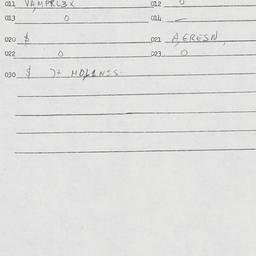 011 VAMPRL3X 012 0
013 0 014 —
020 $ 021 AERESN,
022 0 023 0
030 $